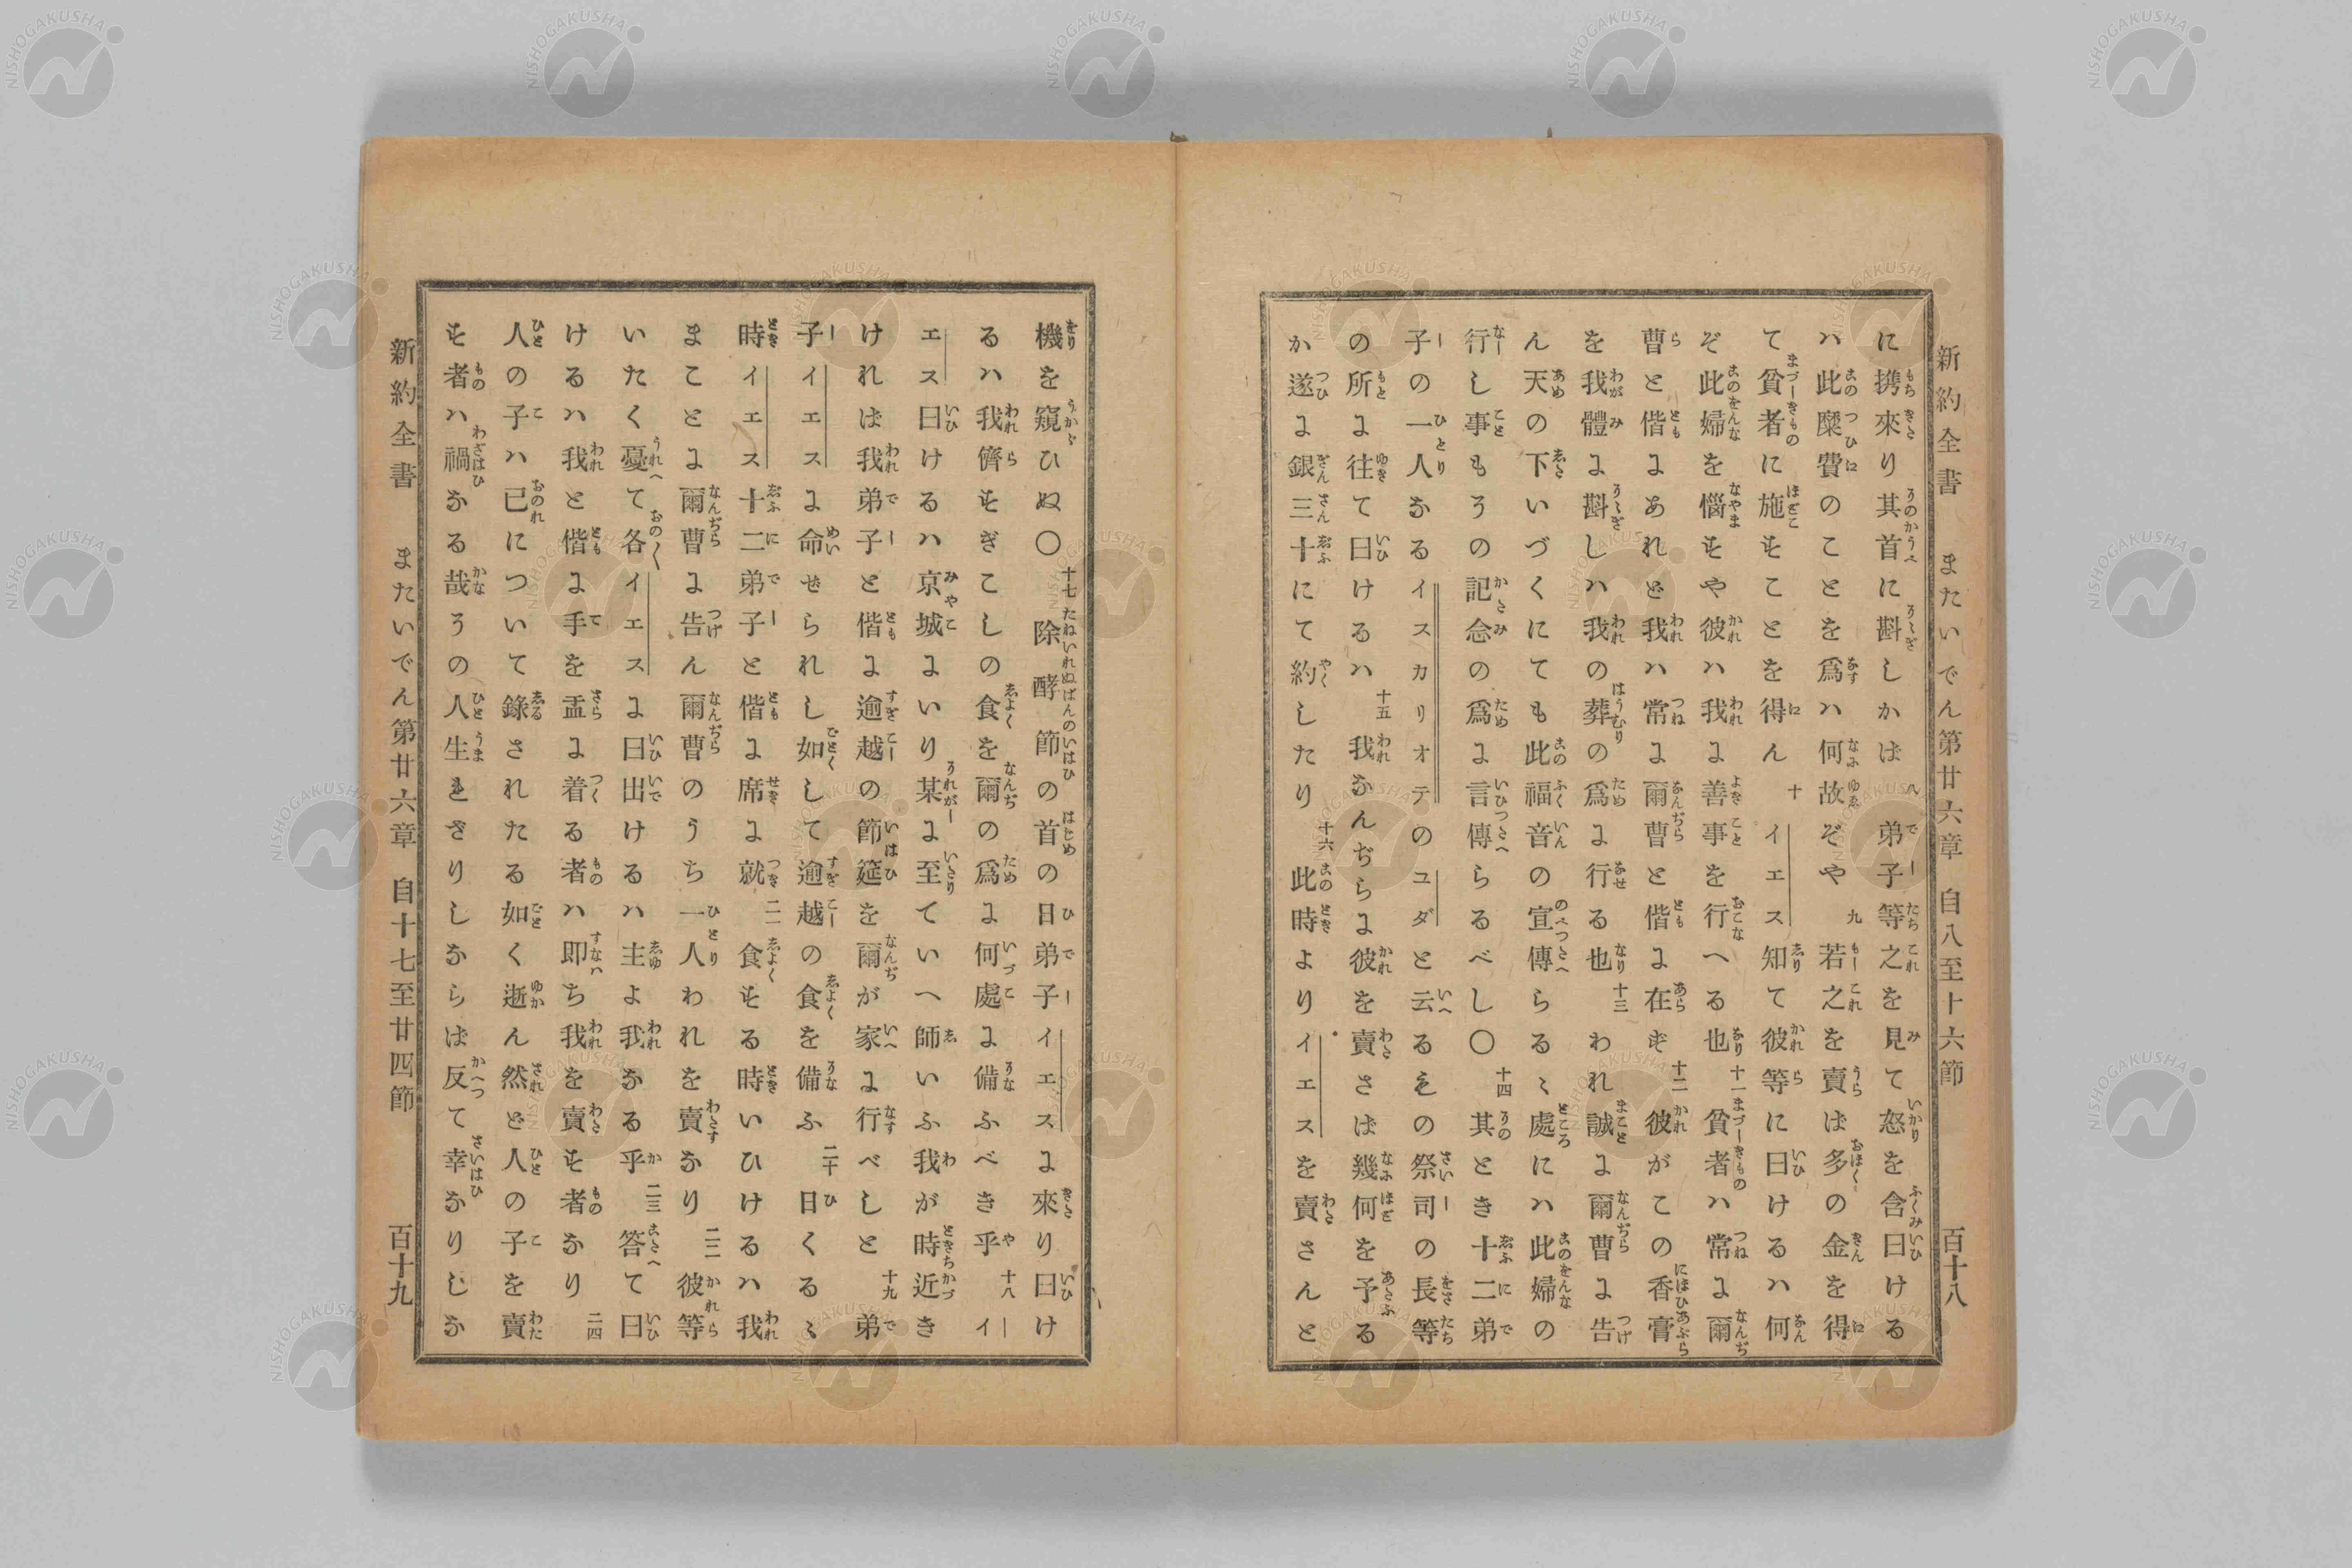 新約全書　またいでん第廿六章　自八至十六節　百十八
に携來り其首に斟しかば八弟子等之を見て怒を含曰ける
ハ此糜費のことを爲ハ何故ぞや九若之を賣ば多の金を得
て貧者に施すことを得ん十イエス知て彼等に曰けるハ何
ぞ此婦を惱すや彼ハ我に善事を行へる也十一貧者ハ常に爾
曹と偕にあれど我ハ常に爾曹と偕に在ず十二彼がこの香膏
を我體に斟しハ我の葬の爲に行る也十三われ誠に爾曹に告
ん天の下いづくにても此福音の宣傳らるゝ處にハ此婦の
行し事もその記念の爲に言傳らるべし〇十四其とき十二弟
子の一人なるイスカリオテのユダと云るもの祭司の長等
の所に往て曰けるハ十五我なんぢらに彼を賣さば幾何を予る
か遂に銀三十にて約したり十六此時よりイエスを賣さんと
機を窺ひぬ〇十七除酵節の首の日弟子イエスに來り曰け
るハ我儕すぎこしの食を爾の爲に何處に備ふべき乎十八イ
エス曰けるハ京城にいり某に至ていへ師いふ我が時近き
ければ我弟子と偕に逾越の節筵を爾が家に行べしと十九弟
子イエスに命せられし如して逾越の食を備ふ二十日くるゝ
時イエス十二弟子と偕に席に就二一食する時いひけるハ我
まことに爾曹に告ん爾曹のうち一人われを賣なり二二彼等
いたく憂て各イエスに曰出けるハ主よ我なる乎二三答て曰
けるハ我と偕に手を盂に着る者ハ即ち我を賣す者なり二四
人の子ハ己について錄されたる如く逝ん然ど人の子を賣
す者ハ禍なる哉その人生れざりしならば反て幸なりしな
新約全書　またいでん第廿六章　自十七至廿四節　百十九
NISHOGAKUSHA